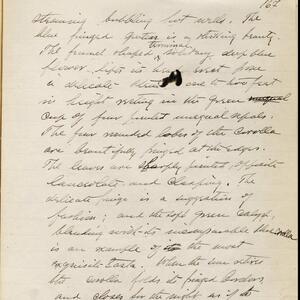 162
steaming bubbling hot wells. The
blue fringed gentian is a striking beauty
The funnel shaped solitary deep blue
terminal
flower lifts its head most from
a delicate stem one to two feet
in height resting in the green
cup of four pointed unequal sepals.
The four rounded lobes of the corolla
are beautifully fringed at the edges.
The leaves are sharply pointed, opposite
lanceolate and clasping. The
delicate fringe is a suggestion of
fashion; and the soft green calyx,
blending with its incomparable blue corolla
is an example of the most
exquisite taste. When the sun retires
the corolla folds its fringed borders
and closes for the night as if the